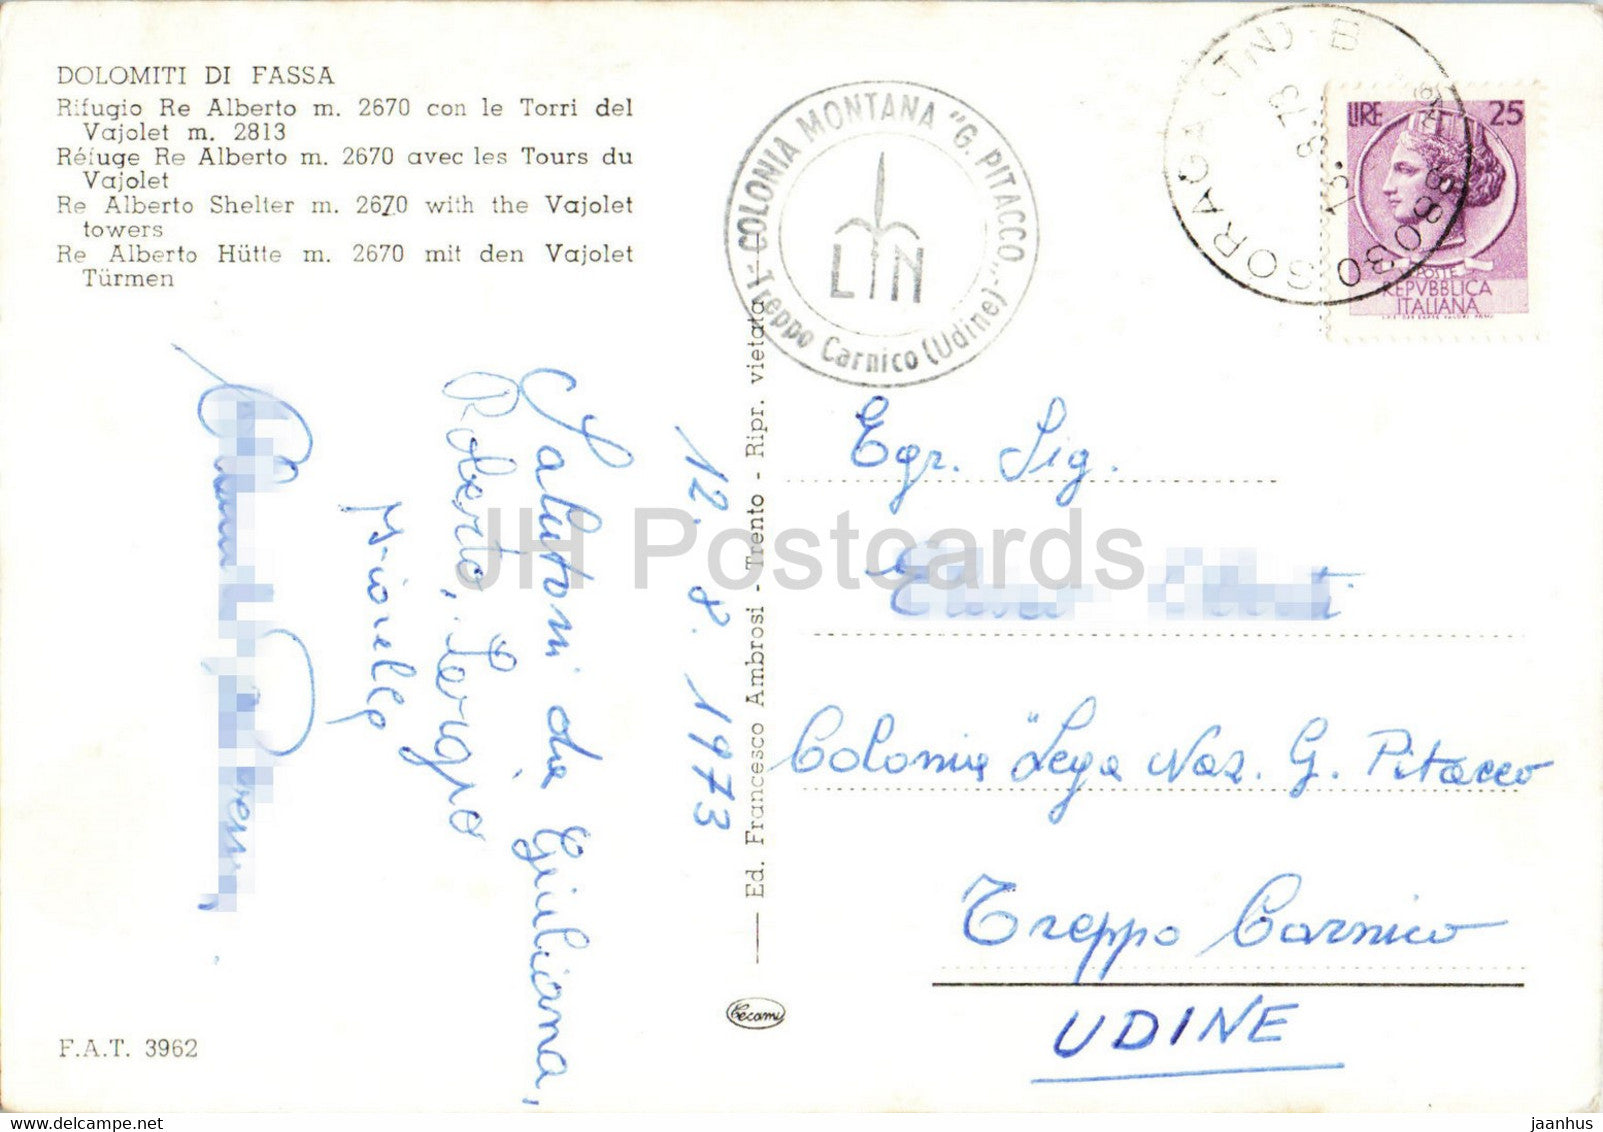 DOLOMITI DI FASSA
Rifugio Re Alberto m. 2670 con le Torri del
Vajolet m. 2813
Réfuge Re Alberto m. 2670 avec les Tours du
Vajolet
Re Alberto Shelter m. 2670 with the Vajolet
towers
Re Alberto Hütte m. 2670 mit den Vajolet
Türmen
COLONIA MONTANA "G. PITACCO"
Treppo Carnico (Udine)
LN
SORAGA (TN) B
8.73
LIRE 25
POSTE
REPVBBLICA
ITALIANA
12. 8. 1973
Salutoni da Giuliana,
Roberto, Sergio
Mirella
Ed. Francesco Ambrosi - Trento - Ripr. vietata
Egr. Sig.
Colonia "Lega Naz. G. Pitacco
Treppo Carnico
UDINE
Cecami
F.A.T. 3962
JH Postcards
jaanhus
delcampe.net